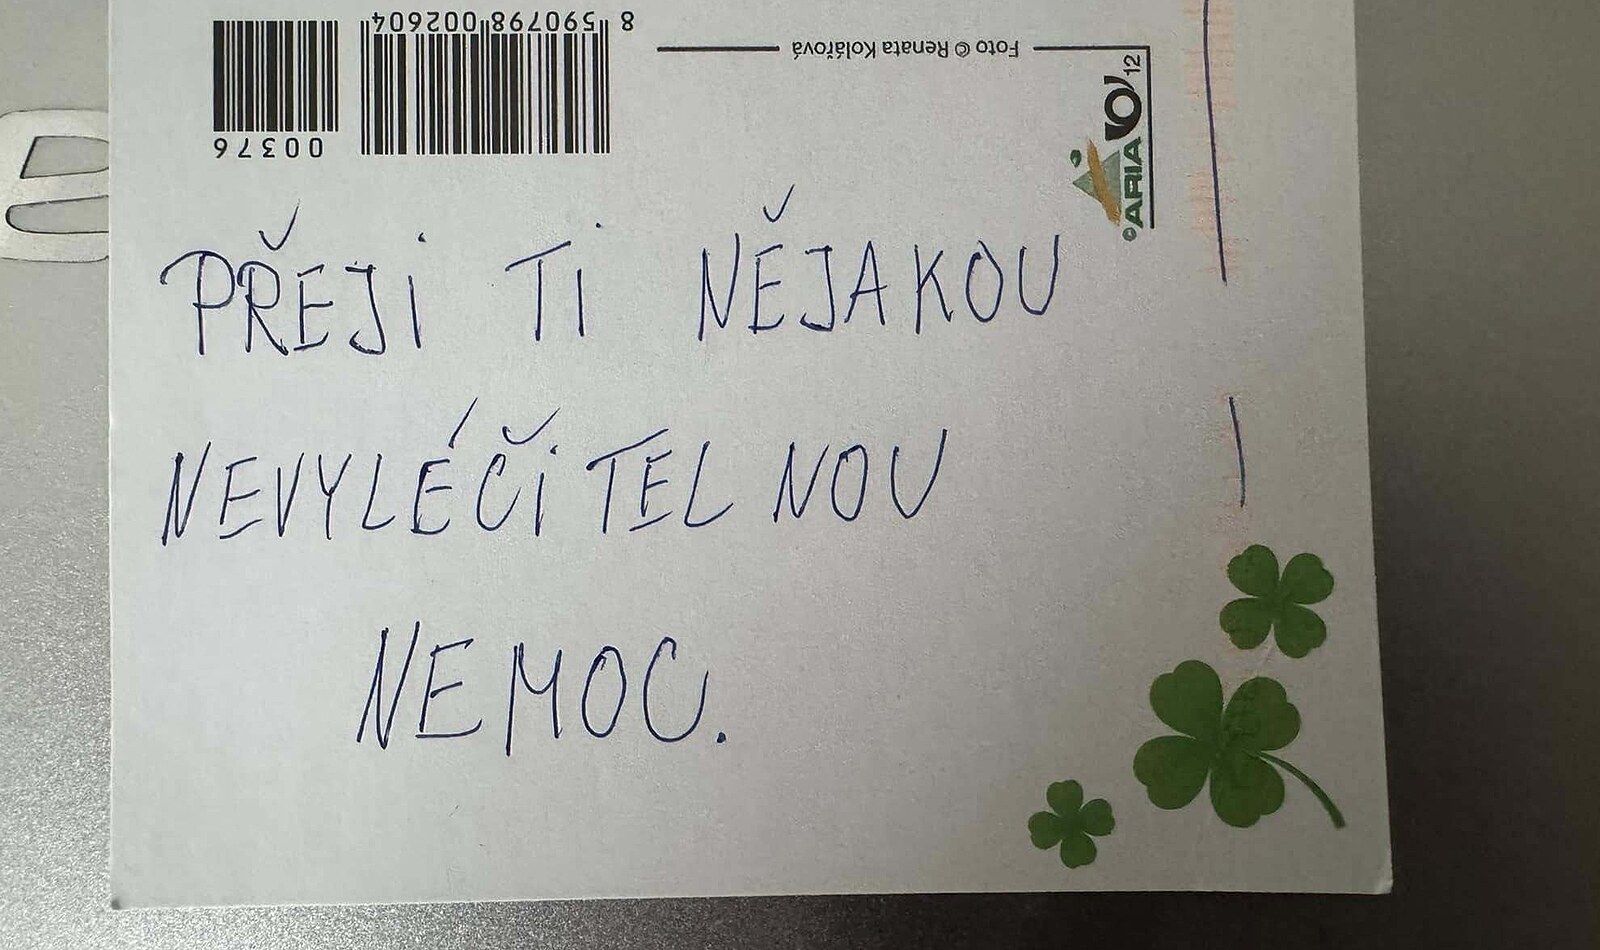 8 590798 002604
00376
Foto © Renata Kolářová
©ARIA
12
PŘEJI TI NĚJAKOU
NEVYLÉČITELNOU
NEMOC.